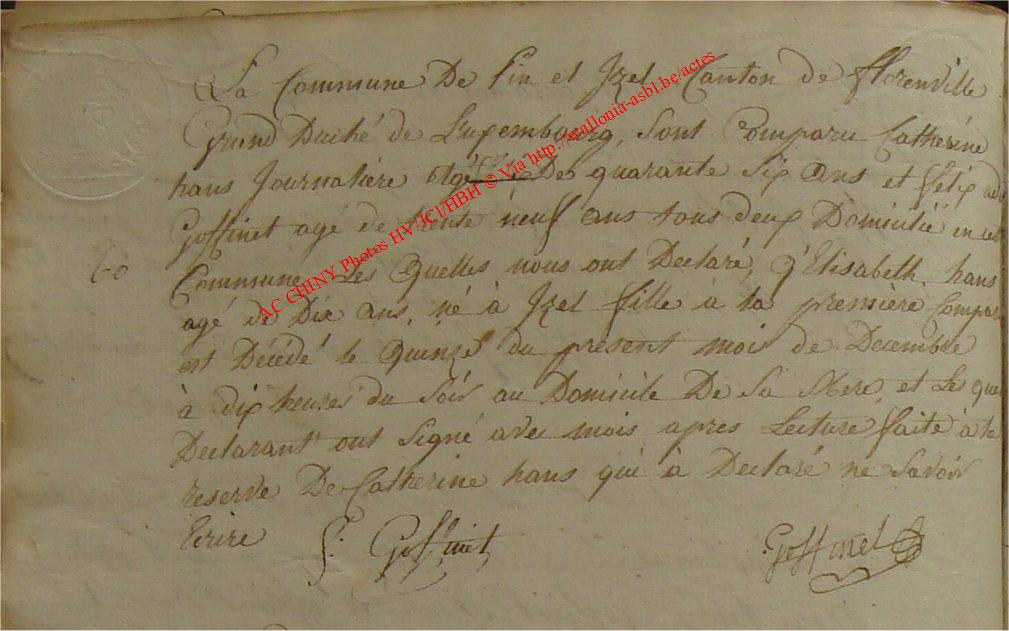 La Commune De Pin et Izel Canton de florenville
Grand Duché de Luxembourg, sont Comparu Catherine
hans Journalière Agé De quarante Six Ans et félix
Goffinet agé de trente neuf ans tous deux Domicilié en cette
60
Commune Les Quelles nous ont Declaré, q'Elisabeth hans
agé de Dix Ans, né à Izel fille à la première Compar
est Décédé le Quinze du présent mois de Decembre
à dix heures du Soir au Domicile De Sa Mere, et Les que
Declarant ont Signé avec mois apres Lecture faite à la
reserve De Catherine hans qui à Declaré ne Savoir
Ecrire f: Goffinet Goffinet
AC CHINY Photos HV/JCl/HBH © Via http://wallonia-asbl.be/actes